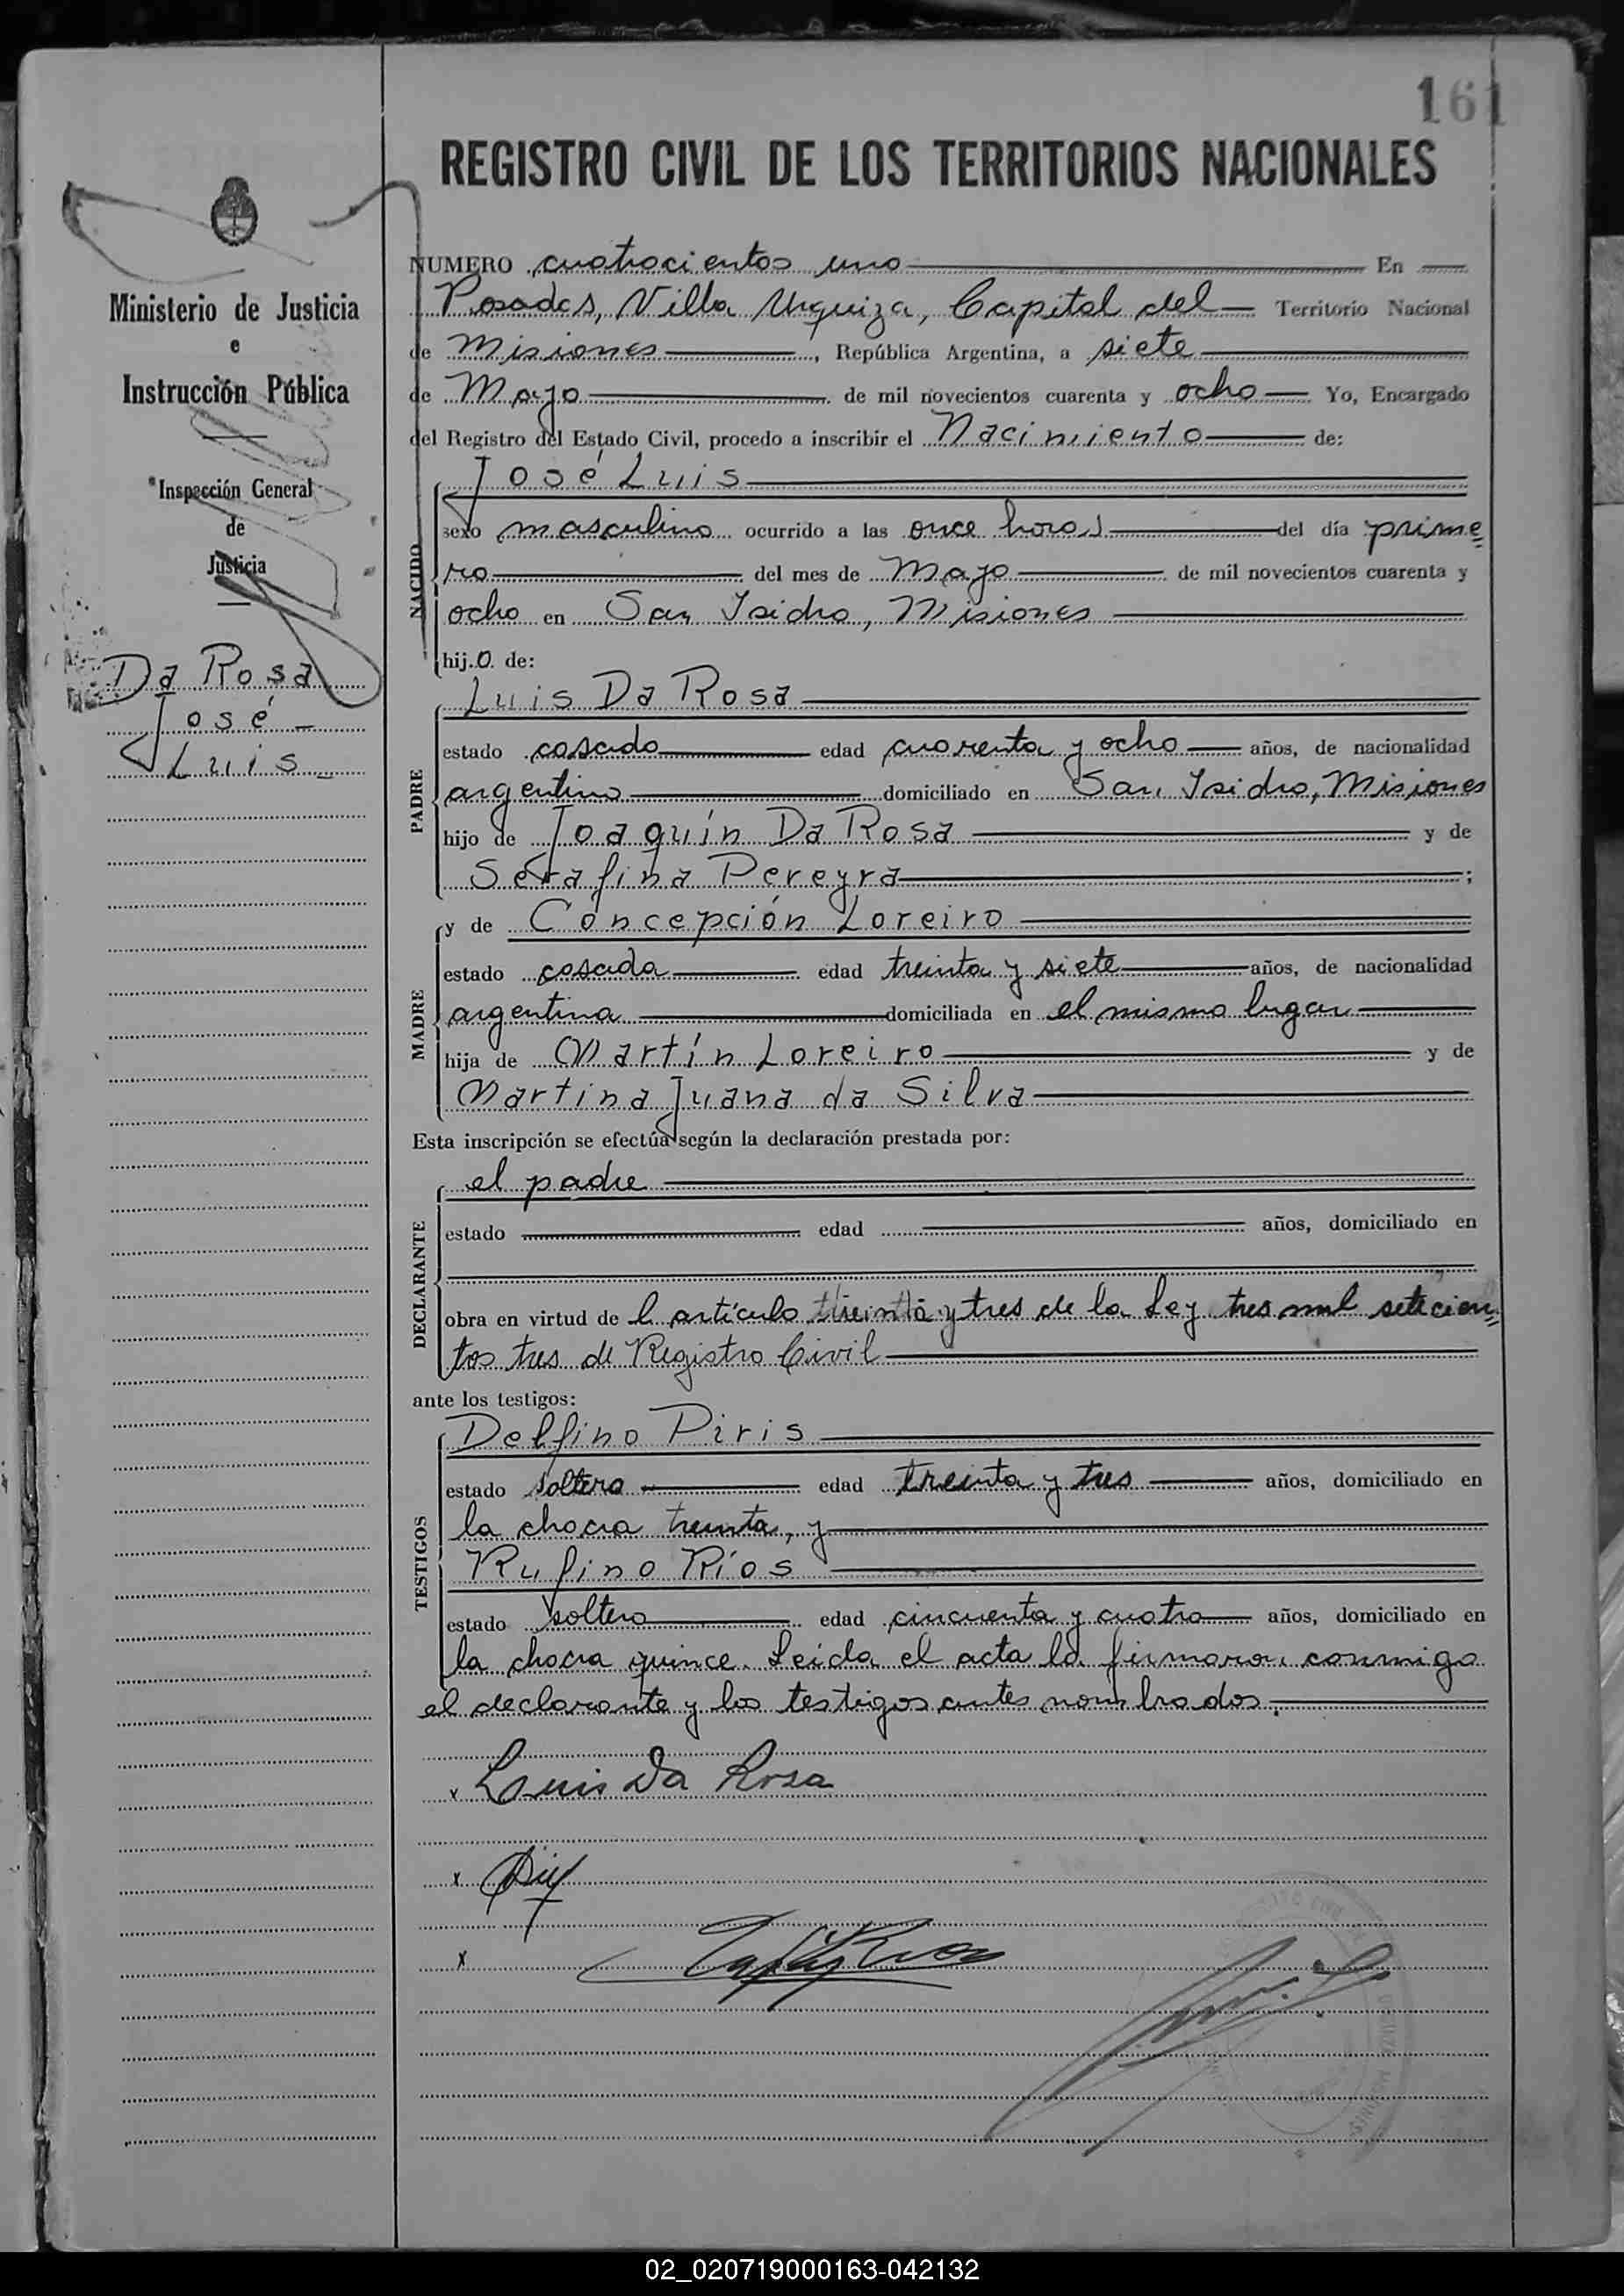 161
REGISTRO CIVIL DE LOS TERRITORIOS NACIONALES
Ministerio de Justicia
e
Instrucción Pública
Inspección General
de
Justicia
Da Rosa
José
Luis
NUMERO cuatrocientos uno En
Posadas, Villa Urquiza, Capital del Territorio Nacional
de Misiones, República Argentina, a siete
de Mayo de mil novecientos cuarenta y ocho Yo, Encargado
del Registro del Estado Civil, procedo a inscribir el Nacimiento de:
NACIDO
José Luis
sexo masculino ocurrido a las once horas del día prime=
ro del mes de Mayo de mil novecientos cuarenta y
ocho en San Isidro, Misiones
hijo de:
PADRE
Luis Da Rosa
estado casado edad cuarenta y ocho años, de nacionalidad
argentino domiciliado en San Isidro, Misiones
hijo de Joaquín Da Rosa y de
Serafina Pereyra;
MADRE
y de Concepción Loreiro
estado casada edad treinta y siete años, de nacionalidad
argentina domiciliada en el mismo lugar
hija de Martín Loreiro y de
Martina Juana da Silva
Esta inscripción se efectúa según la declaración prestada por:
DECLARANTE
el padre
estado edad años, domiciliado en
obra en virtud de l artículo treinta y tres de la Ley tres mil setecien=
tos tres de Registro Civil
ante los testigos:
TESTIGOS
Delfino Piris
estado soltero edad treinta y tres años, domiciliado en
la chacra treinta, y
Rufino Ríos
estado soltero edad cincuenta y cuatro años, domiciliado en
la chacra quince. Leída el acta la firmaron conmigo
el declarante y los testigos antes nombrados.
x Luis Da Rosa
x
x
02_020719000163-042132